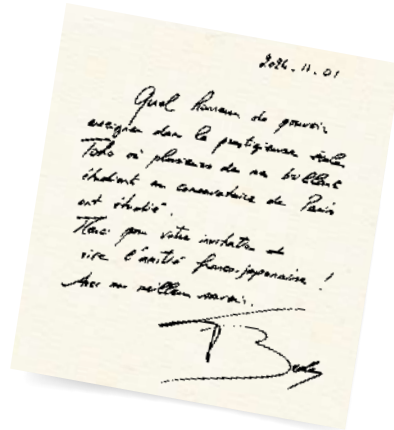 2024.11.01
Quel honneur de pouvoir
enseigner dans la prestigieuse école
Toho où plusieurs de nos brillants
étudiant au conservatoire de Paris
ont étudié.
Merci pour votre invitation et
vive l'amitié franco-japonaise !
Avec mon meilleur souvenir.